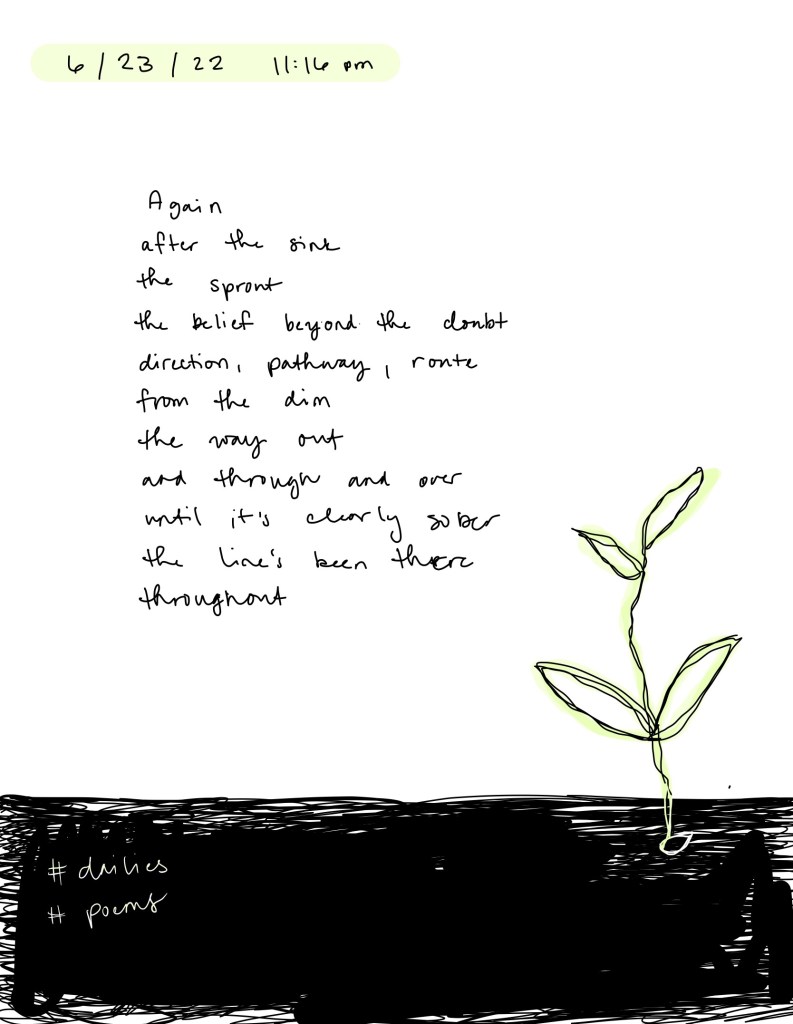 6/23/22 11:16 pm
Again
after the sink
the sprout
the belief beyond the doubt
direction, pathway, route
from the dim
the way out
and through and over
until it's clearly sober
the line's been there
throughout
# dailies
# poems